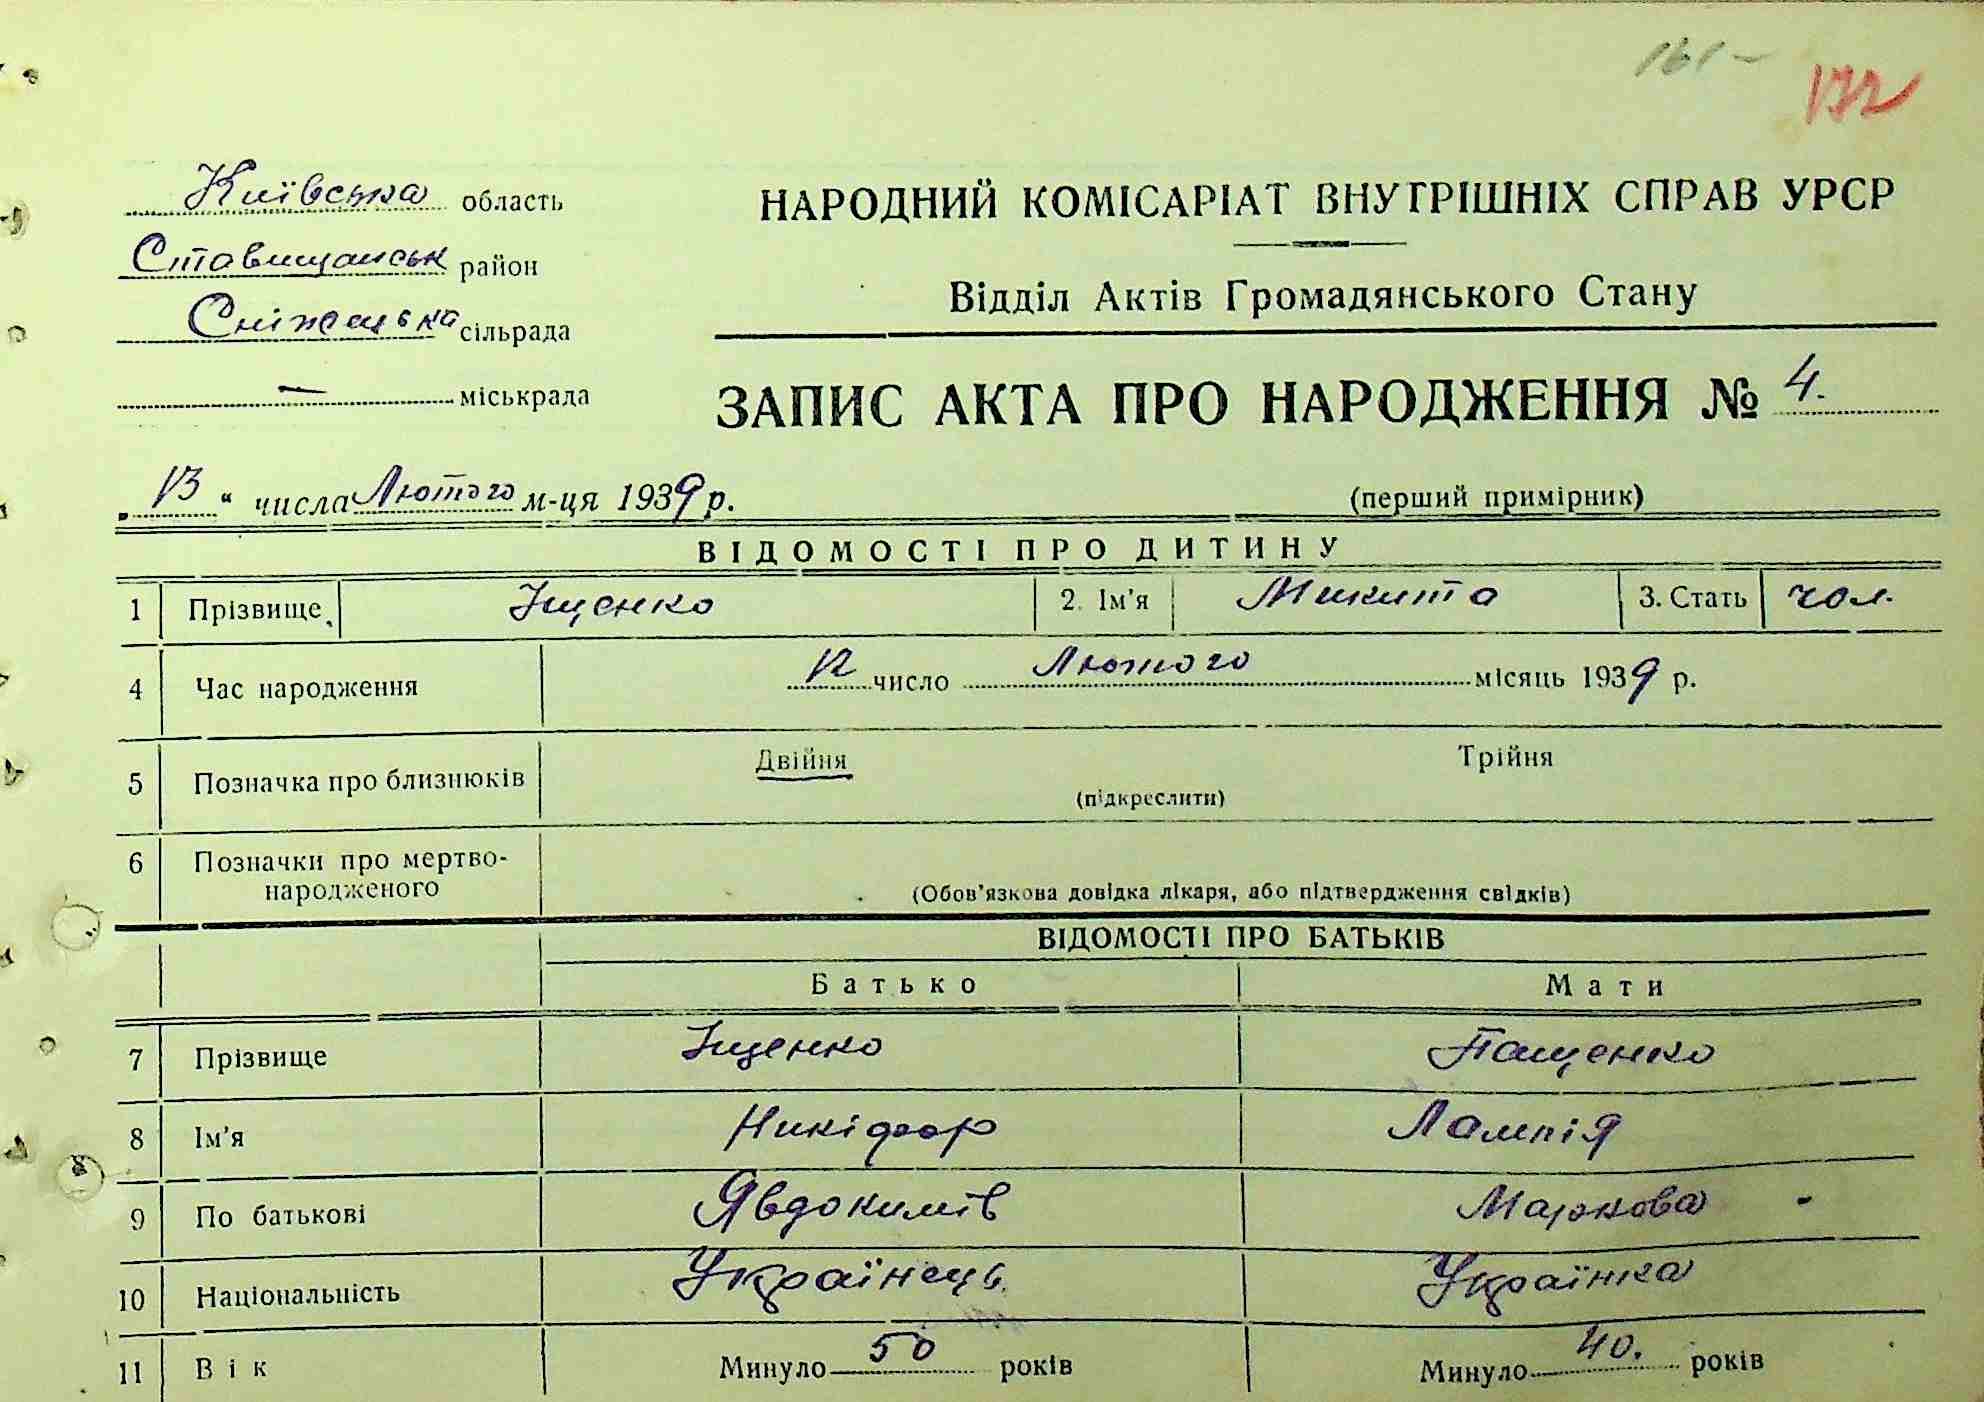 161-
172
Київська область
Ставищанськ район
Сніжецька сільрада
— міськрада
НАРОДНИЙ КОМІСАРІАТ ВНУТРІШНІХ СПРАВ УРСР
Відділ Актів Громадянського Стану
ЗАПИС АКТА ПРО НАРОДЖЕННЯ № 4.
„13“ числа Лютого м-ця 1939 р.
(перший примірник)
ВІДОМОСТІ ПРО ДИТИНУ
1 Прізвище Іщенко 2. Ім'я Микита 3. Стать чол.
4 Час народження 12 число Лютого місяць 1939 р.
5 Позначка про близнюків Двійня Трійня
(підкреслити)
6 Позначки про мертво-
народженого
(Обов'язкова довідка лікаря, або підтвердження свідків)
ВІДОМОСТІ ПРО БАТЬКІВ
Батько Мати
7 Прізвище Іщенко Пащенко
8 Ім'я Никіфор Лампія
9 По батькові Явдокимів Маркова
10 Національність Українець Українка
11 Вік Минуло 50 років Минуло 40. років